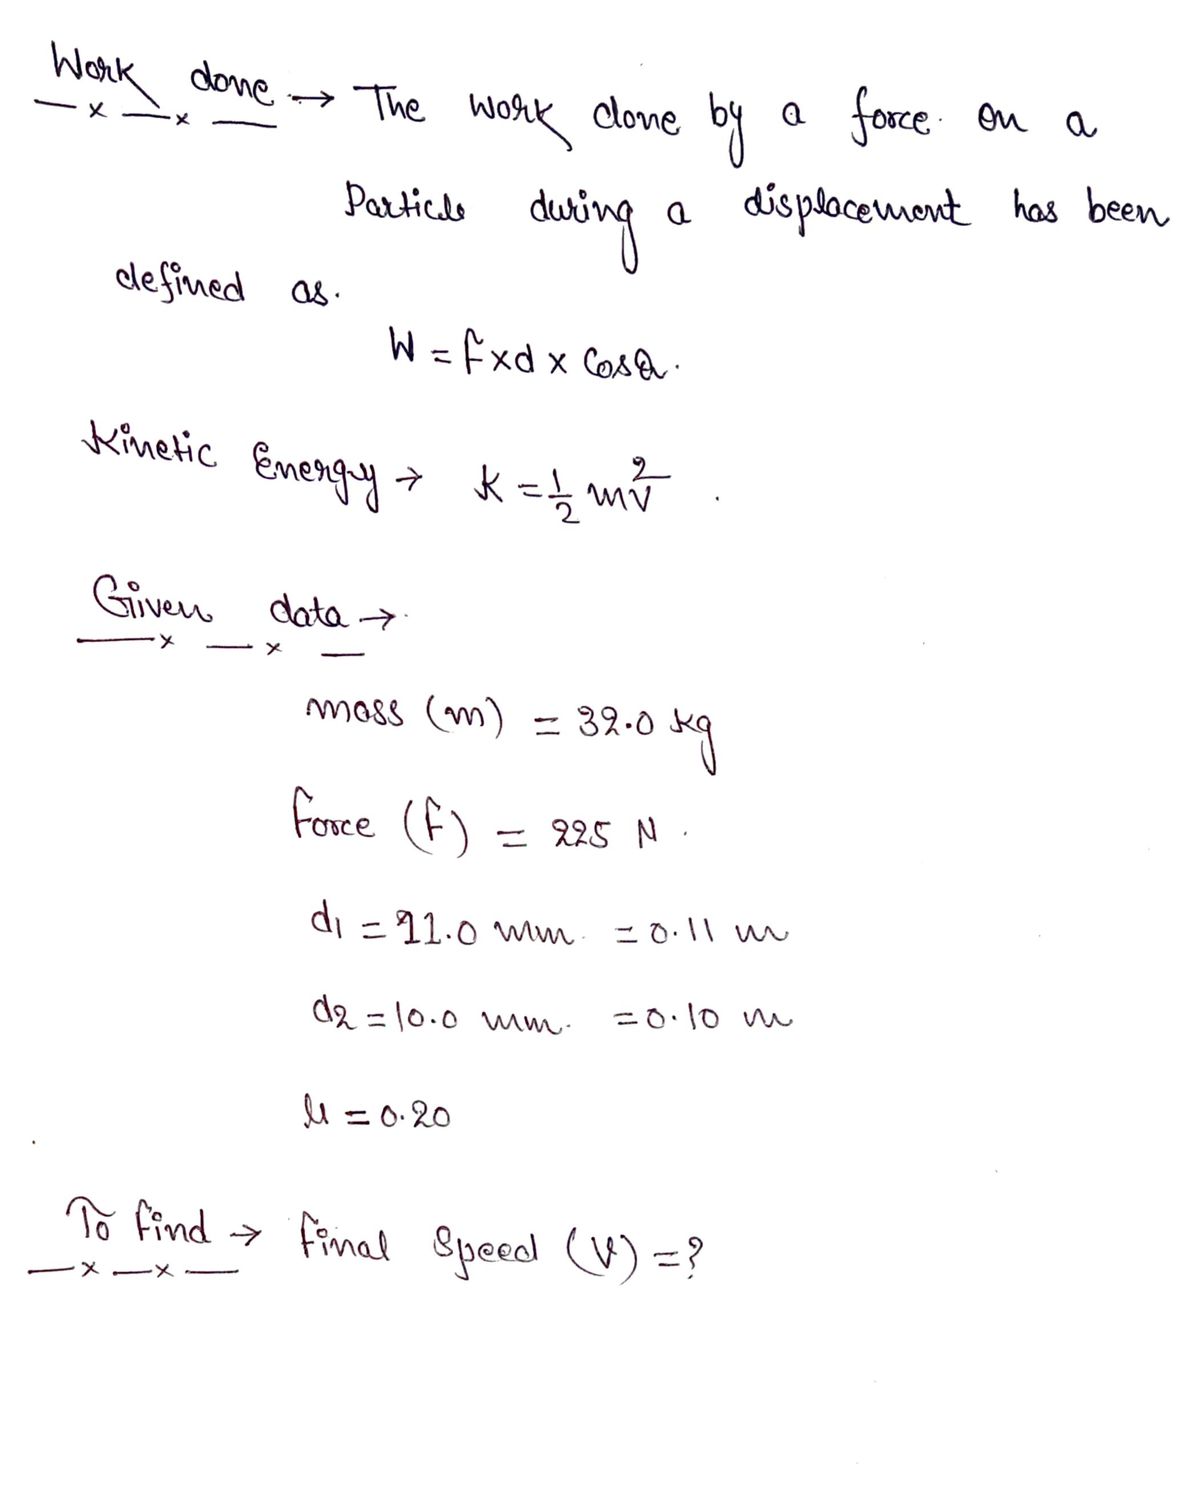 Work done → The work done by a force on a
Particle during a displacement has been
defined as.
W = F x d x Cosθ.
Kinetic Energy → K = 1/2 mv²
Given data →
mass (m) = 32.0 kg
Force (F) = 225 N
d1 = 11.0 mm = 0.11 m
d2 = 10.0 mm. = 0.10 m
μ = 0.20
To find → Final Speed (V) = ?